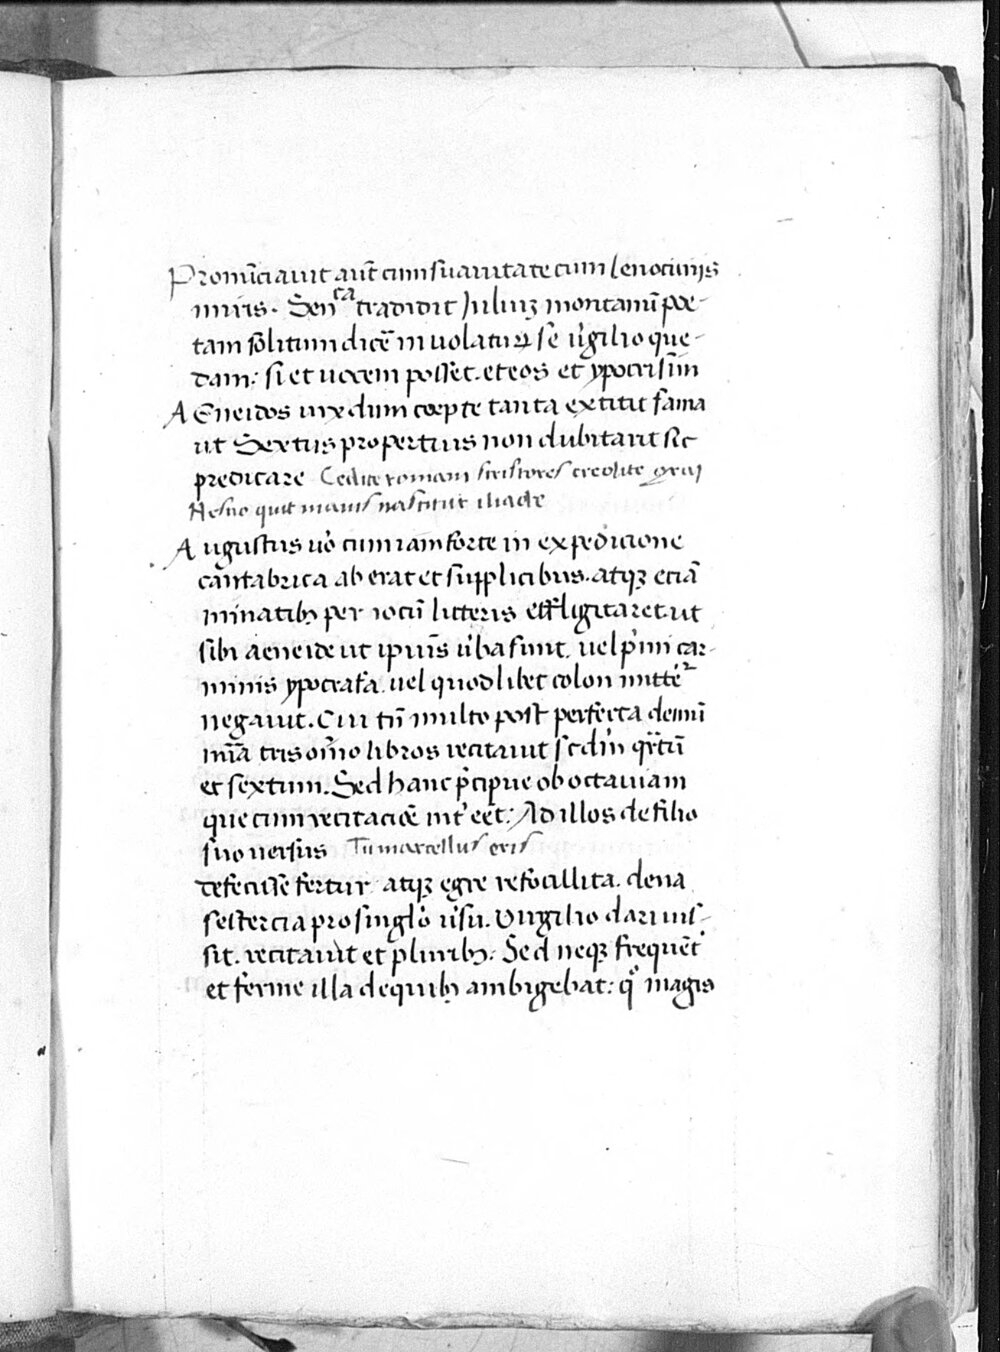 Pronūciauit aūt cum suauitate cum lenocinijs
miris. Senca tradidit Juliuȝ montanū poe-
tam solitum dicē inuolaturꝝ se ūgilio que-
dam: si et uocem posset. et eos et ypocrisim
AEneidos uix dum cœpte tanta extitit fama
ut Sextus propertius non dubitarit sic
predicare Cedite romani scristores credite graj
Nesno quit maius nascitur iliade
Augustus uo cum iam forte in expedicione
cantabrica ab erat et supplicibus. atqȝ eciā
minatibȝ per iocū litteris efflligitaret. ut
sibi aeneide ut ipiuīs uba sunt. uel pimi car-
minis ypocrafa. uel quodlibet colon mitter
negauit. Cui tn̄ multo post perfecta demū
mīa tris om̄o libros recitauit scdm qrtū
et sextum. Sed hanc p̄cipue ob octauiam
que cum recitacōe int eēt: Ad illos de filio
suo uersus Tu marcellus eris
defecisse fertur. atqȝ egre refocillita. dena
sestercia pro singlo usu. Uirgilio dari ius-
sit. recitauit et pluribȝ: Sed neqȝ frequēt
et ferme illa de quibȝ ambigebat: qo magis